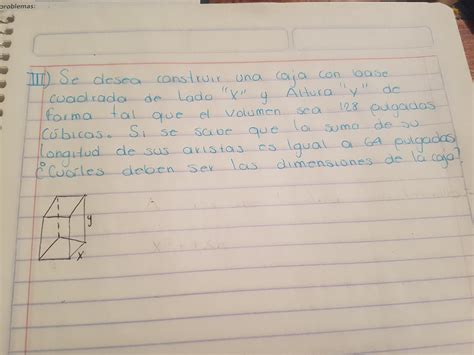 problemas:
III) Se desea construir una caja con base
cuadrada de Lado "X" y Altura "Y" de
forma tal que el volumen sea 128 pulgadas
cúbicas. Si se save que la suma de su
longitud de sus aristas es Igual a 64 pulgadas
¿Cuáles deben ser las dimensiones de la caja?
y
x